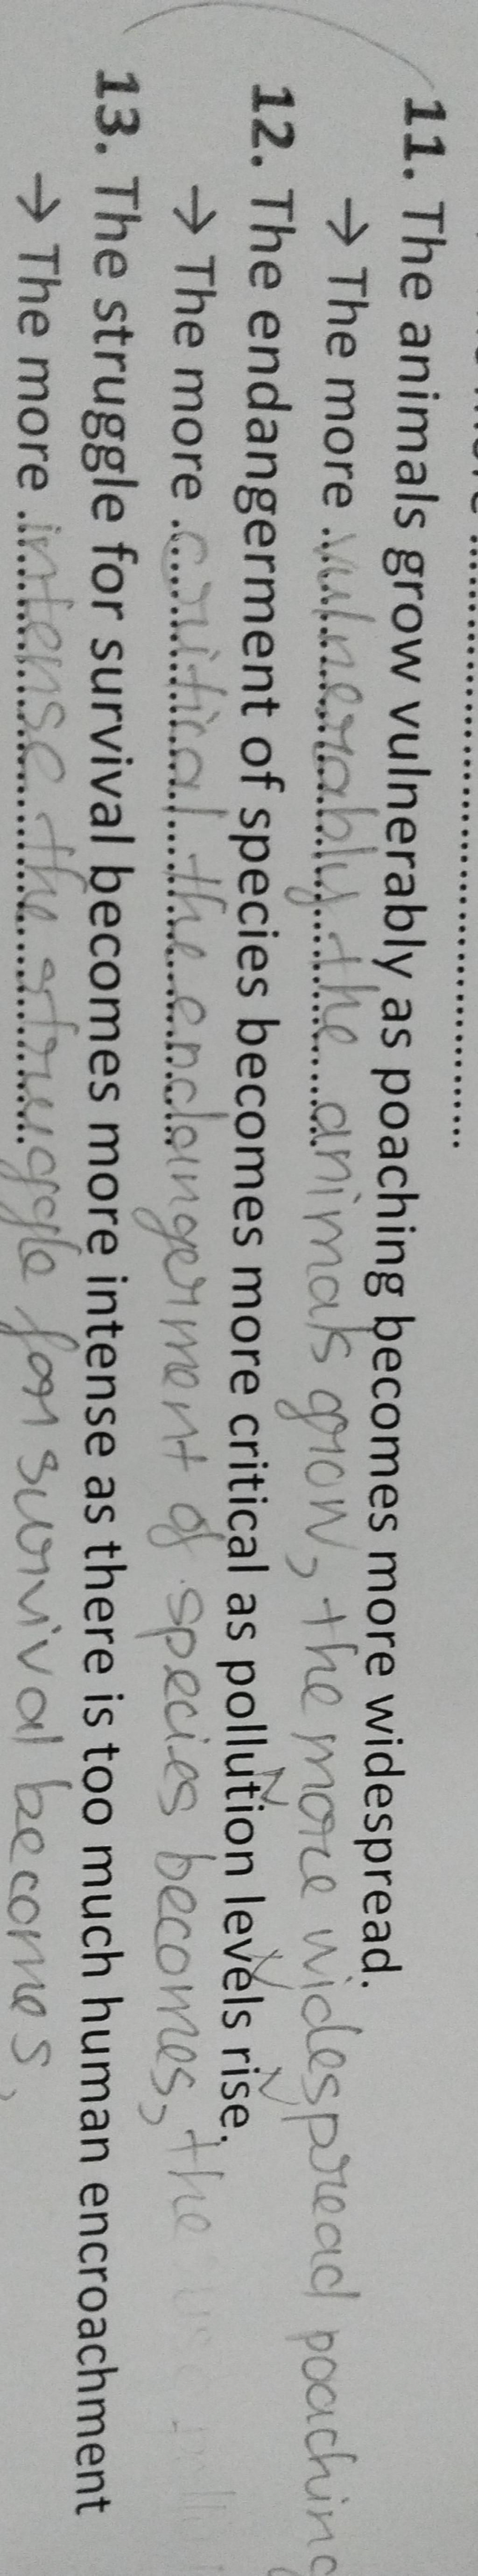 11. The animals grow vulnerably as poaching becomes more widespread.
→ The more vulnerably the animals grow, the more widespread poaching
12. The endangerment of species becomes more critical as pollution levels rise.
→ The more critical the endangerment of species becomes, the
13. The struggle for survival becomes more intense as there is too much human encroachment
→ The more intense the struggle for survival becomes,